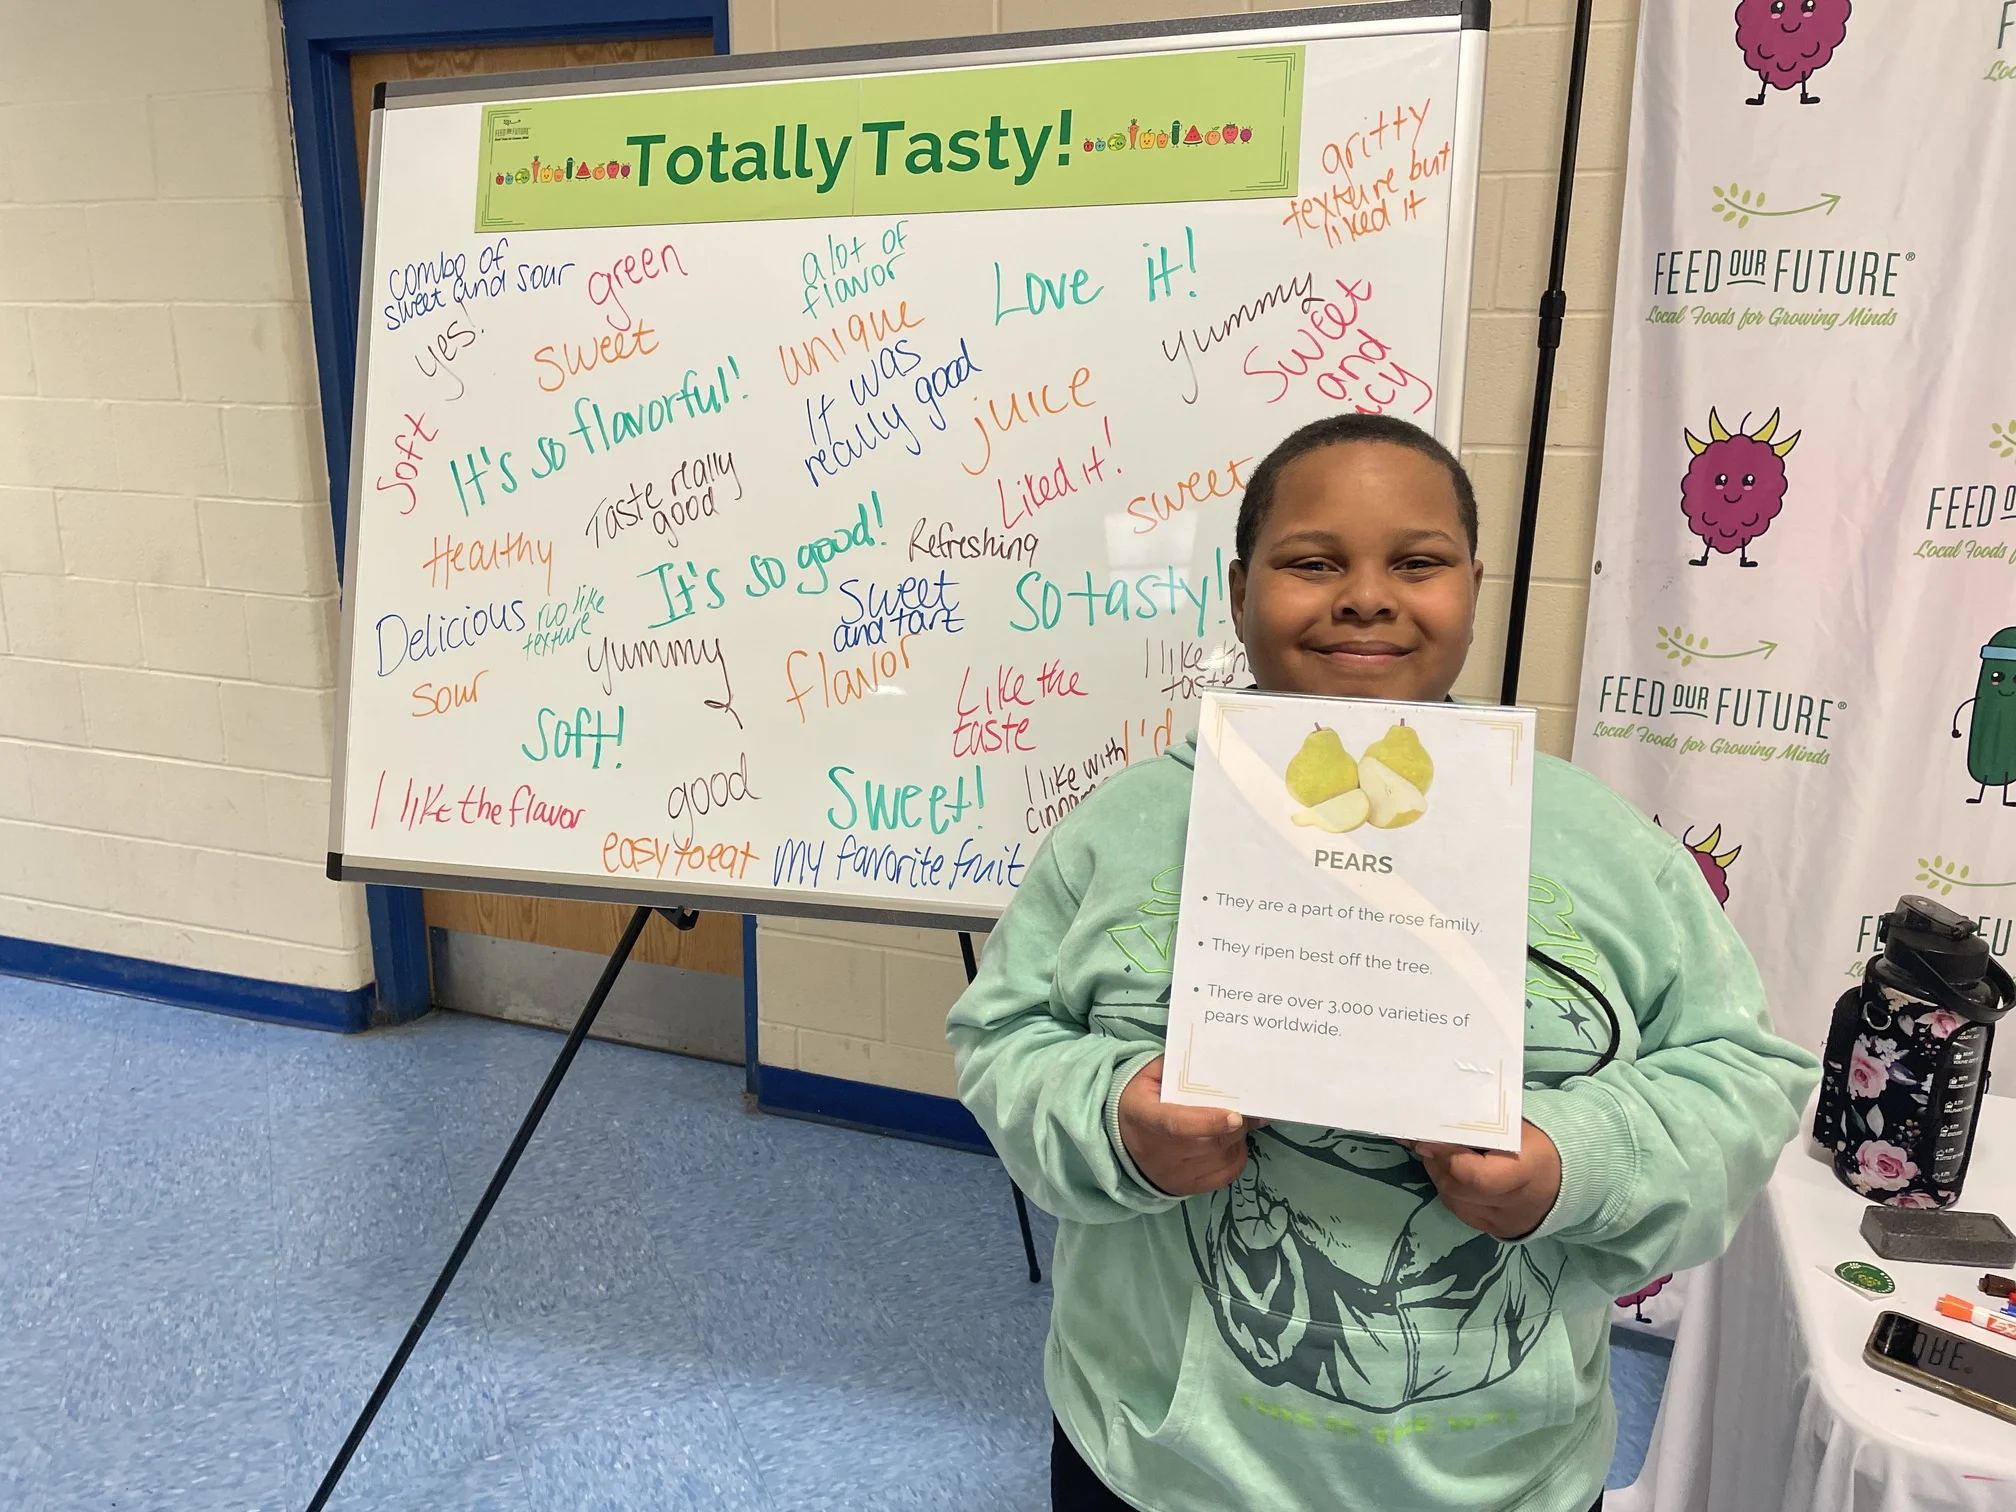 Totally Tasty!
FEED OUR FUTURE
combo of
sweet and sour
green
a lot of
flavor
Love it!
gritty
texture but
liked it
yes!
sweet
unique
yummy
sweet
and
soft
It's so flavorful!
It was
really good
juice
Taste really
good
Liked it!
sweet
Healthy
It's so good!
Refreshing
Delicious
no like
texture
yummy
sweet
and tart
So tasty!
sour
flavor
Like the
taste
I like
taste
soft!
I like the flavor
good
Sweet!
I like with
easy to eat
my favorite fruit
PEARS
• They are a part of the rose family.
• They ripen best off the tree.
• There are over 3,000 varieties of
pears worldwide.
FEED OUR FUTURE®
Local Foods for Growing Minds
FEED OUR FUTURE®
Local Foods for Growing Minds
FEED
Local Foods